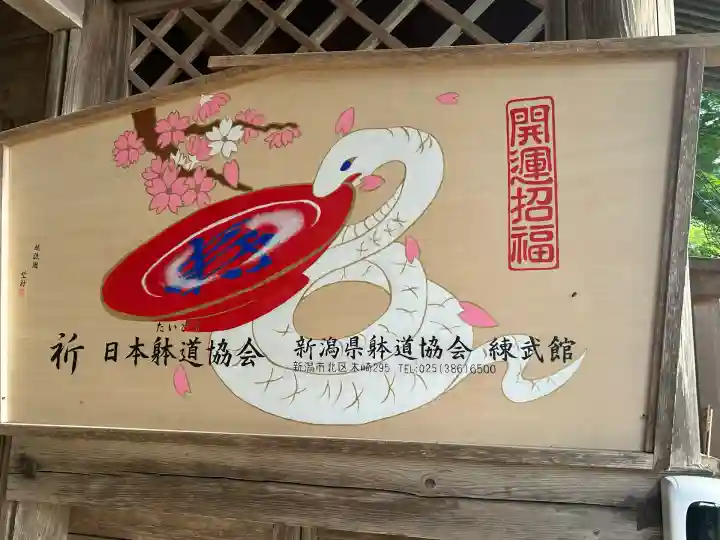 開運招福
祈 日本躰道協会 新潟県躰道協会 練武館
たいどう
新潟市北区木崎295 TEL:025(386)6500